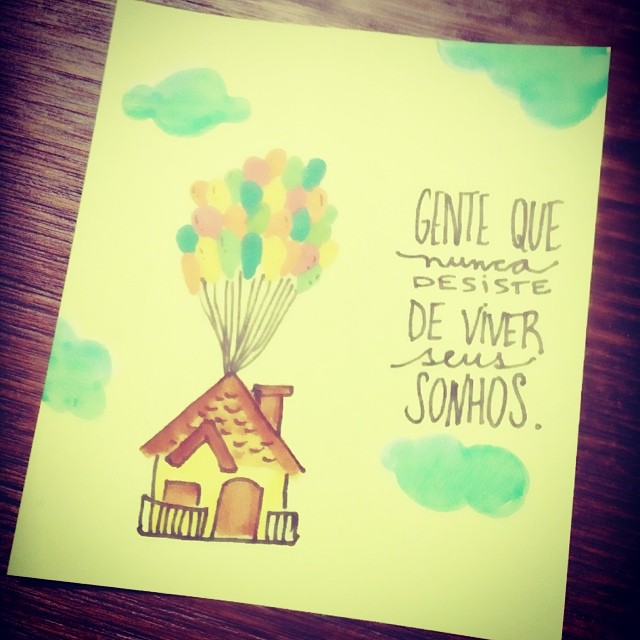 GENTE QUE
nunca
DESISTE
DE VIVER
seus
SONHOS.